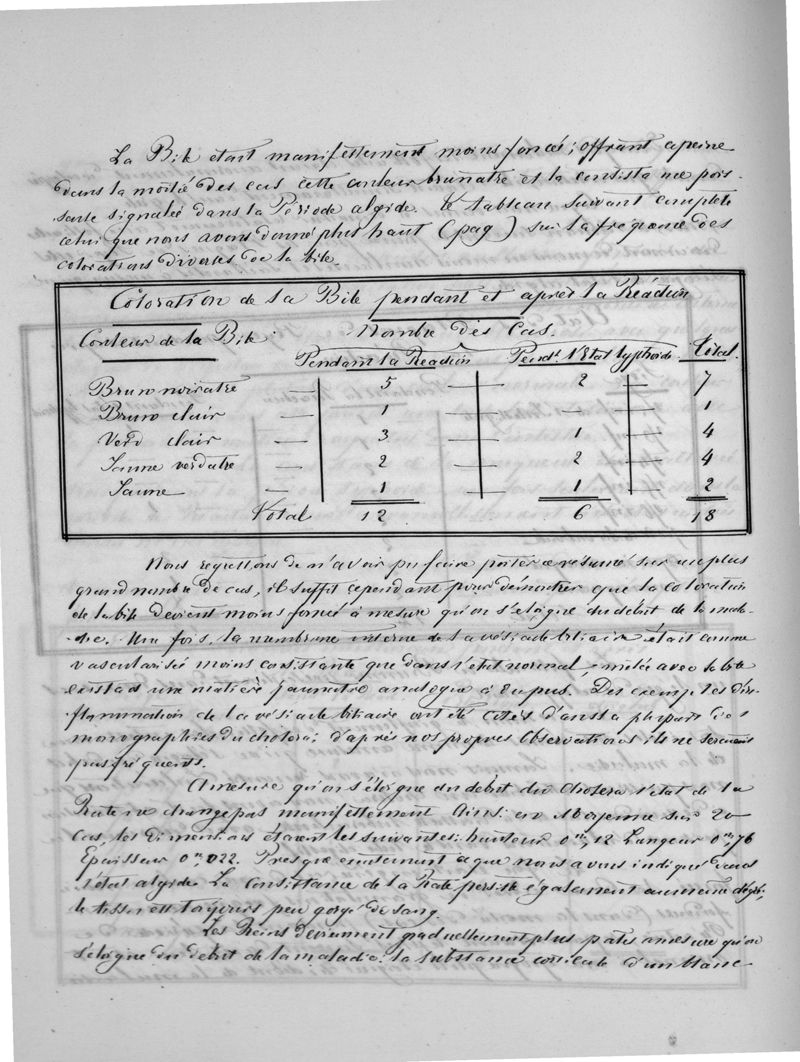 La Bile était manifestement moins foncée; offrant apeine
dans la moitié des cas cette couleur brunatre et la consistance pois-
sante signalée dans la Période algide. Le tableau suivant complete
celui que nous avons donné plus haut (pag ) sur la fréqence des
colorations diverses de la bile.
Coloration de la Bile pendant et après la Réaction
Couleur de la Bile Nombre des Cas.
Pendant la Reaction Pendt. l'Etat typhoide. Total.
Brun noiratre — 5 — 2 — 7
Brun clair — 1 — — 1
Verd clair — 3 — 1 — 4
Jaune verdatre — 2 — 2 — 4
Jaune — 1 — 1 — 2
Total 12 6 18
Nous regrettons de n'avoir pu faire porter ce résumé sur un plus
grand nombre de cas, il suffit cependant pour démontrer que la coloration
de la bile devient moins foncée à mesure qu'on s'eloigne du debut de la mala-
die. Une fois, la membrane interne de la vésicule biliaire était comme
vascularisée moins consistante que dans l'etat normal, mêlée avec la bile
existais une matière jaunatre analogue à du pus. Des exemples d'in-
flammation de la vésicule biliaire ont été cités dans la plupart des
monographies du cholera; d'après nos propres observations ils ne seraient
pas fréquents.
A mesure qu'on s'éloigne du début du Cholera l'etat de la
Rate ne change pas manifestement Ainsi en Moyenne sur 20
Cas, les Dimensions étaient les suivantes: hauteur 0m, 12 Largeur 0m, 76
Epaisseur 0m, 022. Presque exactement ce que nous avons indiqué dans
l'état algide. La Consistance de la Rate persiste également au meme dégré,
le tissu est toujours peu gorgé de sang.
Les Reins deviennent graduellement plus pales a mesure qu'on
s'éloigne du debut de la maladie. la substance corticale d'un blanc